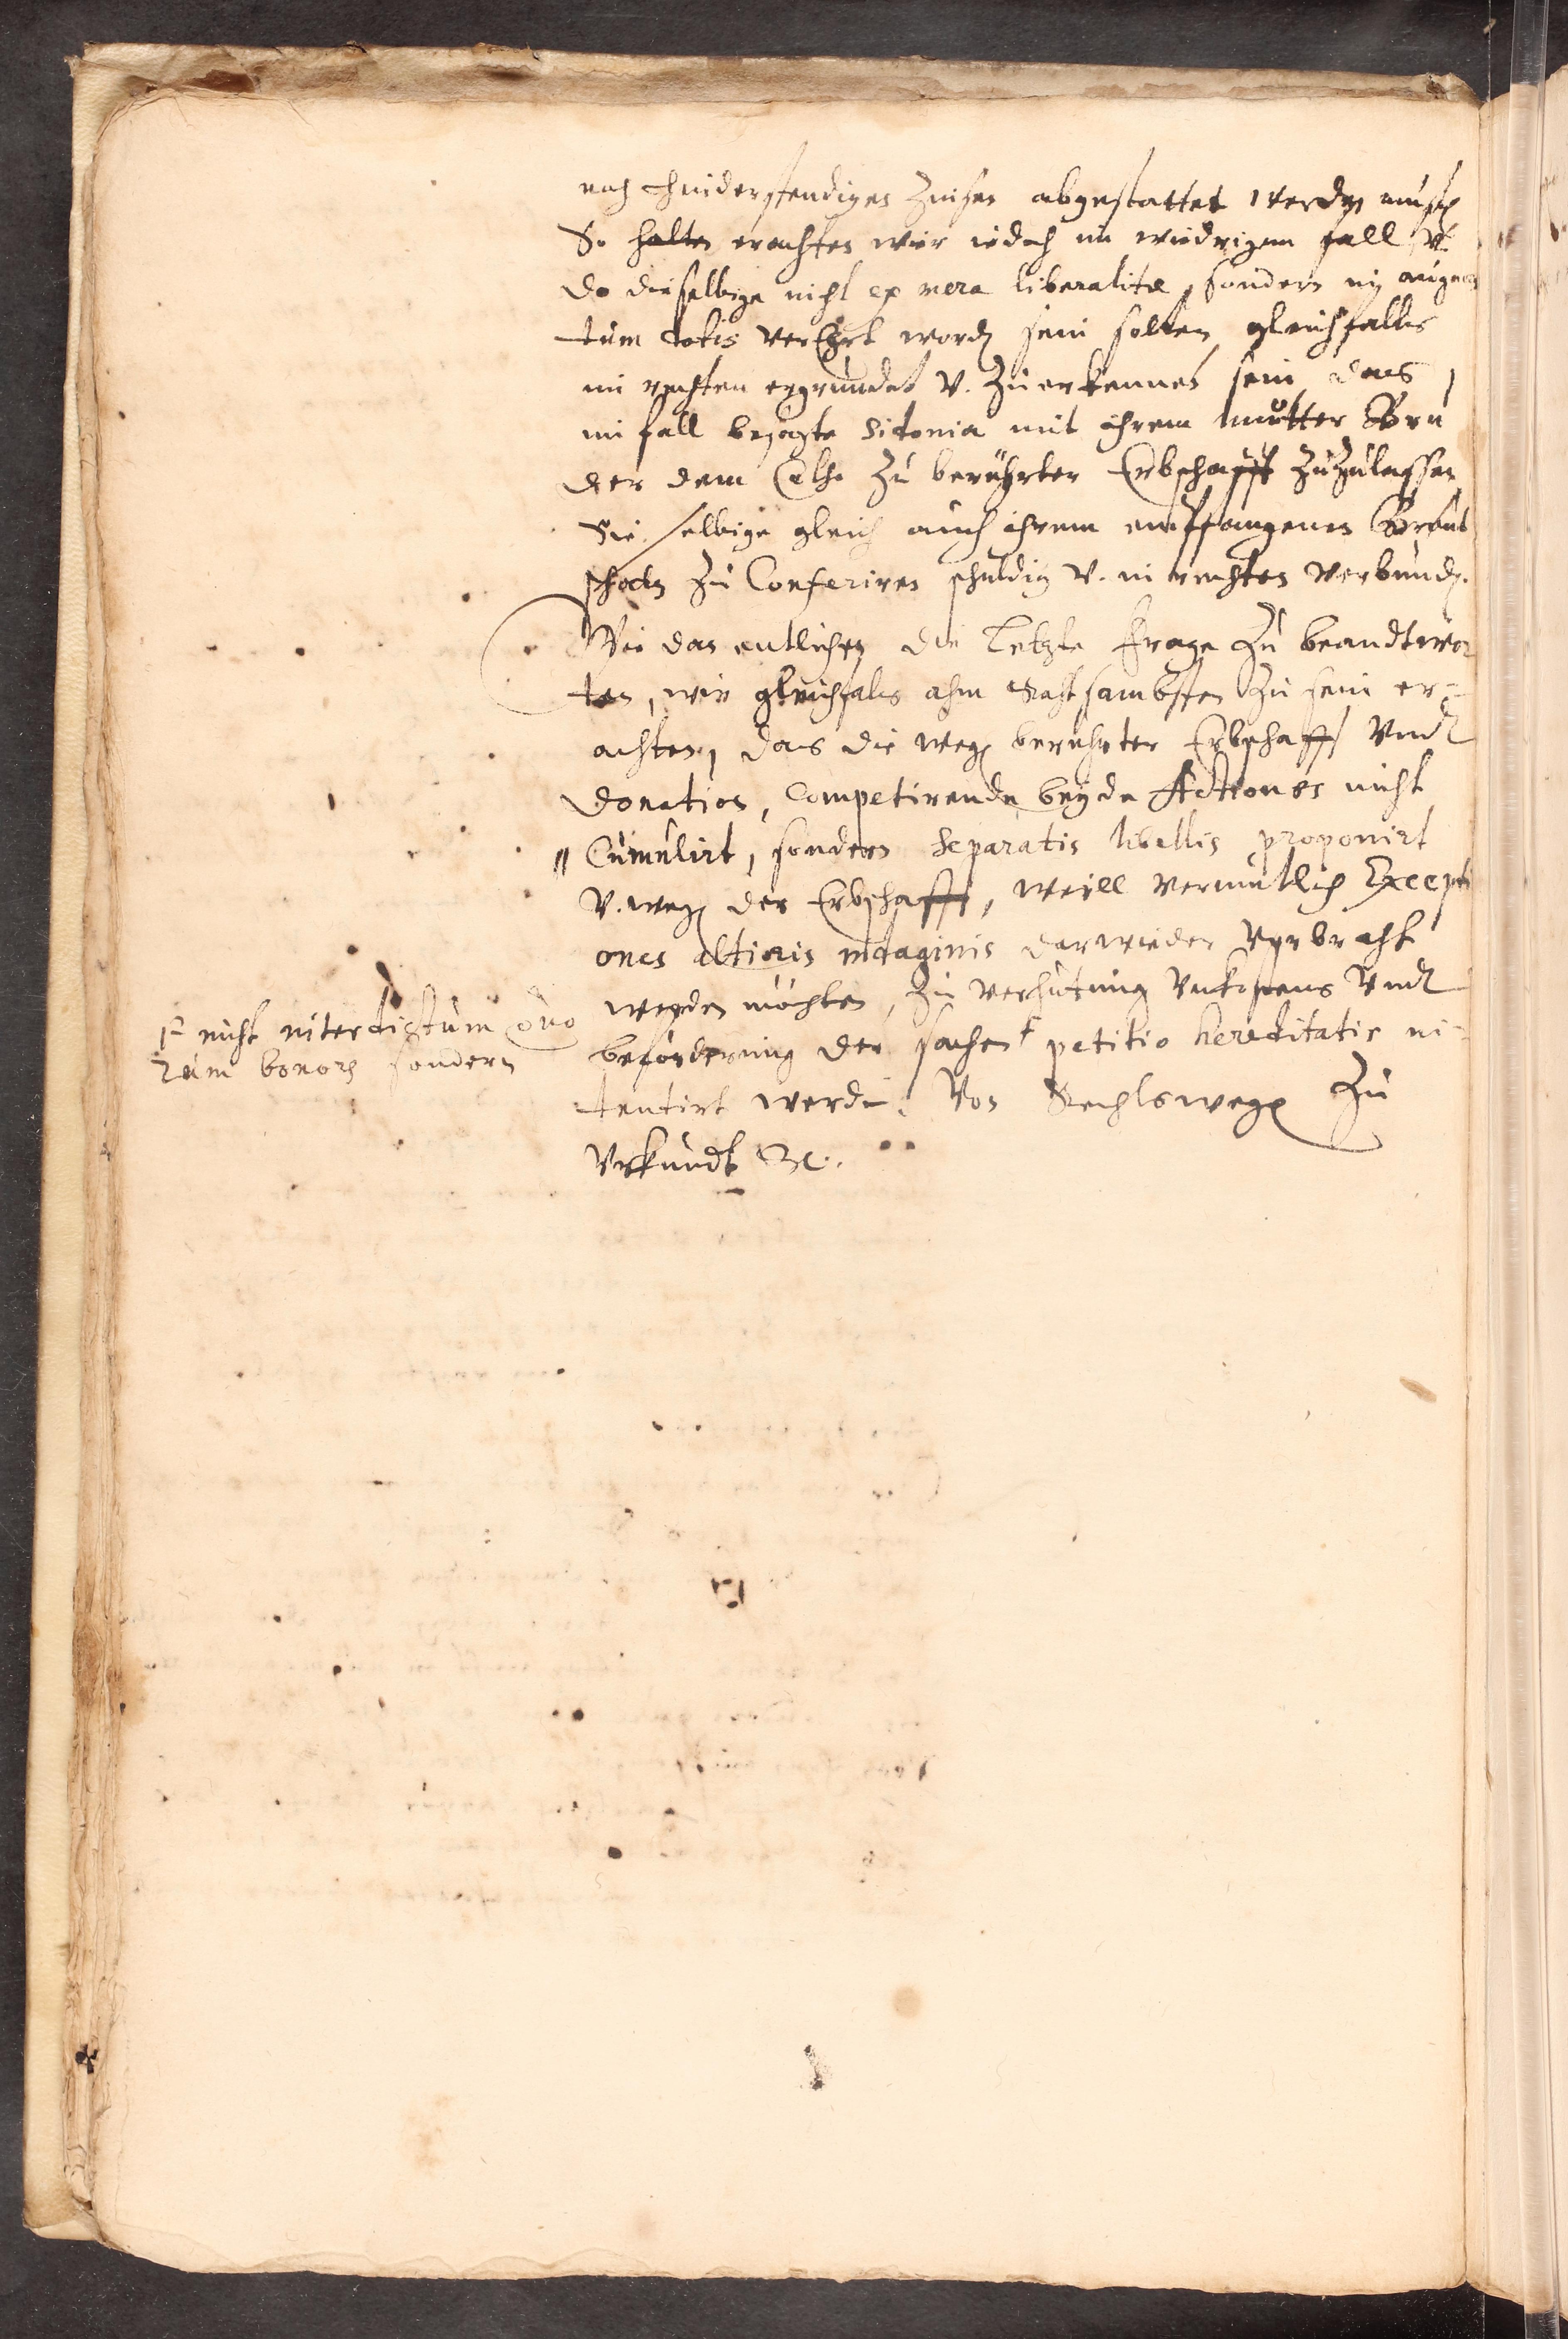 noch hinderstendigen Zinsen abgestattet werden musse
So halten erachten wier iedoch im wiedrigem fall v.
do dieselbige nicht ex mera liberalitate, sondern in augmen
tum dotis verehrt worden sein solten gleichfalls
in rechten ergrundet v. zuerkennen sein, das
im fall besagte Sidonia mit ihrem mutter Bru
der dem zu berührter Erbschafft zuzulassen
Sie selbige gleich auch ihrem empfangenen Braut
schatz zu Conferiren schuldig v. in rechten verbunden.
Wie dan entlichen die letzte frage zu beandtwor
ten, wir gleichfals ahm Rahtsambsten zu sein er-
achten, das die wegen beruhrter Erbschafft vnd
donation, competirende beyde Actiones nicht
Cumulirt, sondern separatis libellis proponirt
v. wegen der Erbschafft, weill vermutlich Excepti
ones altioris indaginis darwieder vorbracht
werden möchten, zu verhutung vnkostens vnd
beforderung der sachen † petitio hereditatis in-
tentirt werde. Von Rechtswegen Zu
Vrkundt &c.
† nicht interdictum quo
rum bonorum sondern